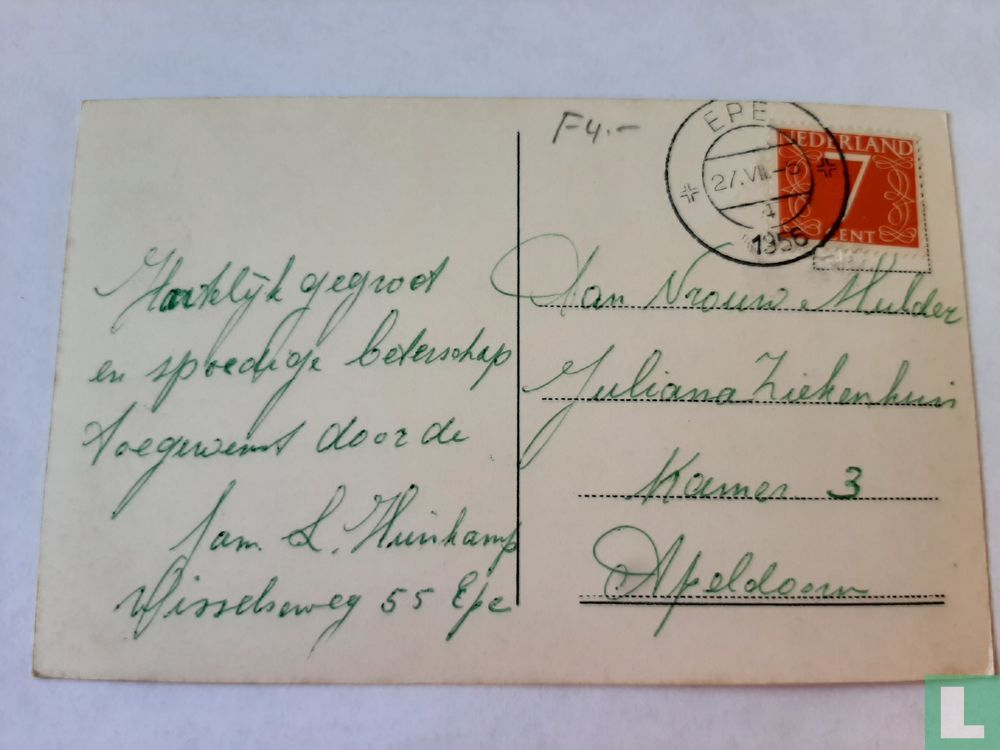 Hartelijk gegroet
en spoedige beterschap
toegewenst door de
fam. L. Huinkamp
Wisselseweg 55 Epe
F4.-
EPE
27.VII.-6
1956
NEDERLAND
7
CENT
Aan Vrouw Mulder
Juliana Ziekenhuis
Kamer 3
Apeldoorn
L